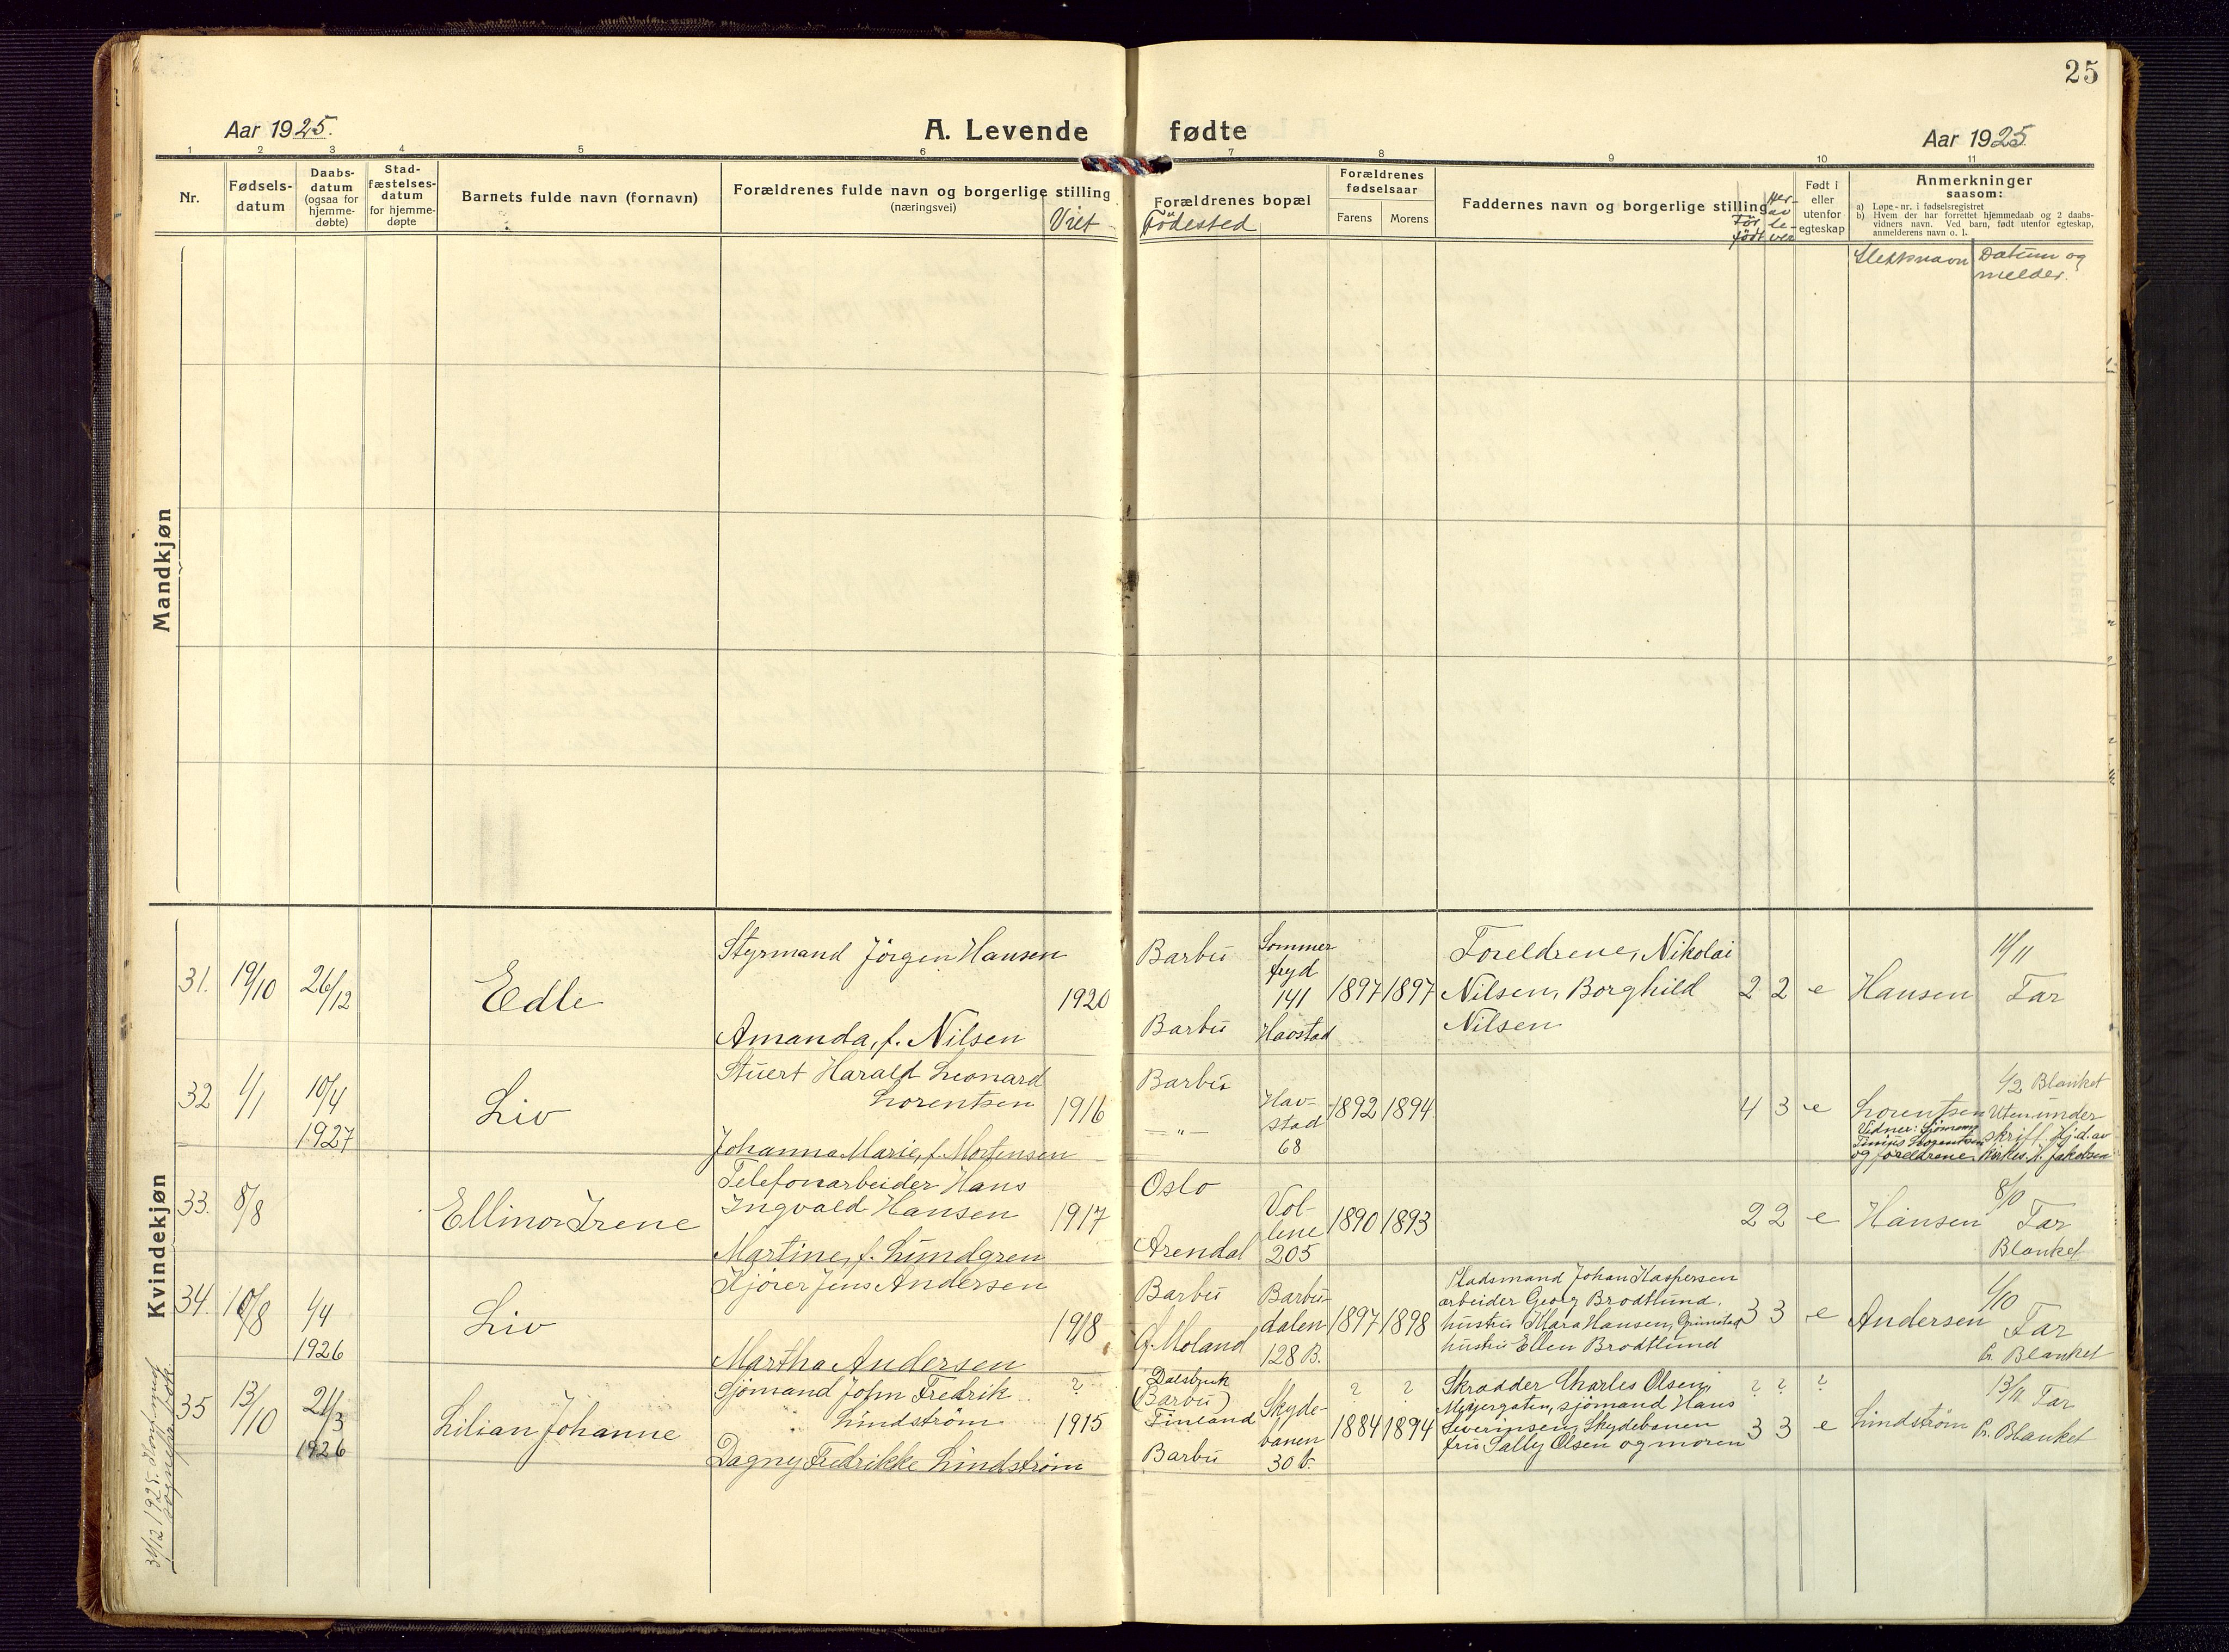 25
Aar 1925.
A. Levende fødte
Aar 1925.
1 2 3 4 5 6 7 8 9 10 11
Nr.
Fødsels-
datum
Daabs-
datum
(ogsaa for
hjemme-
døbte)
Stad-
fæstelses-
datum
for hjemme-
døpte
Barnets fulde navn (fornavn)
Forældrenes fulde navn og borgerlige stilling
(næringsvei)
Viet
Forældrenes bopæl
Födested
Forældrenes
fødselsaar
Farens
Morens
Faddernes navn og borgerlige stilling
För
födt
Her-
av
le-
ver
Født i
eller
utenfor
egteskap
Anmerkninger
saasom:
a) Løpe-nr. i fødselsregistret
b) Hvem der har forrettet hjemmedaab og 2 daabs-
vidners navn. Ved barn, født utenfor egteskap,
anmelderens navn o. l.
Slektsnavn
Datum og
melder.
Mandkjøn
Kvindekjøn
31.
19/10
26/12
Edle
Styrmand Jörgen Hansen
1920
Amanda, f. Nilsen
Barbu
Barbu
Sommer
fryd
141
Havstad
1897
1897
Foreldrene, Nikolai
Nilsen, Borghild
Nilsen
2 2 e
Hansen
11/11
Far
32
1/1
10/4
1927
Liv
Stuert Harald Leonard
Lorentsen
1916
Johanna Marie, f. Mortensen
Barbu
— " —
Hav-
stad
68
1892
1894
4 3 e
Lorentsen
Vidner: Sjömann
og foreldrene
1/2 Blanket
Uten under
skrift. Hj.d. av
H. Jakobsen
33.
8/8
Ellinor Irene
Telefonarbeider Hans
Ingvald Hansen
1917
Martine, f. Lundgren
Oslo
Arendal
Vol-
lene
205
1890
1893
2 2 e
Hansen
Far
Blanket
34.
10/8
4/4
1926
Liv
Kjörer Jens Andersen
1918
Martha Andersen
Barbu
Ö. Moland
Barbu-
dalen
128 B.
1897
1898
Pladsmand Johan Kaspersen
arbeider Georg Brodtlund.
hustru Klara Hansen, Grimstad
hustru Ellen Brodtlund
3 3 e
Andersen
1/10
Far
Pr. Blanket
35
13/10
21/3
1926
Lilian Johanne
Sjömand John Fredrik
Lindström
?
1915
Dagny Fredrikke Lindström
Dalsbruk
(Barbu)
Finland
Barbu
Skyde-
banen
30 b.
? ?
1884
1894
Skrædder Charles Olsen,
Myhrgaten, sjömand Hans
Severinsen, Skydebanen
fru Sally Olsen og moren
? ? ?
3 3 e
Lindström
13/11 Far
Pr. Blanket
31/12 1925.